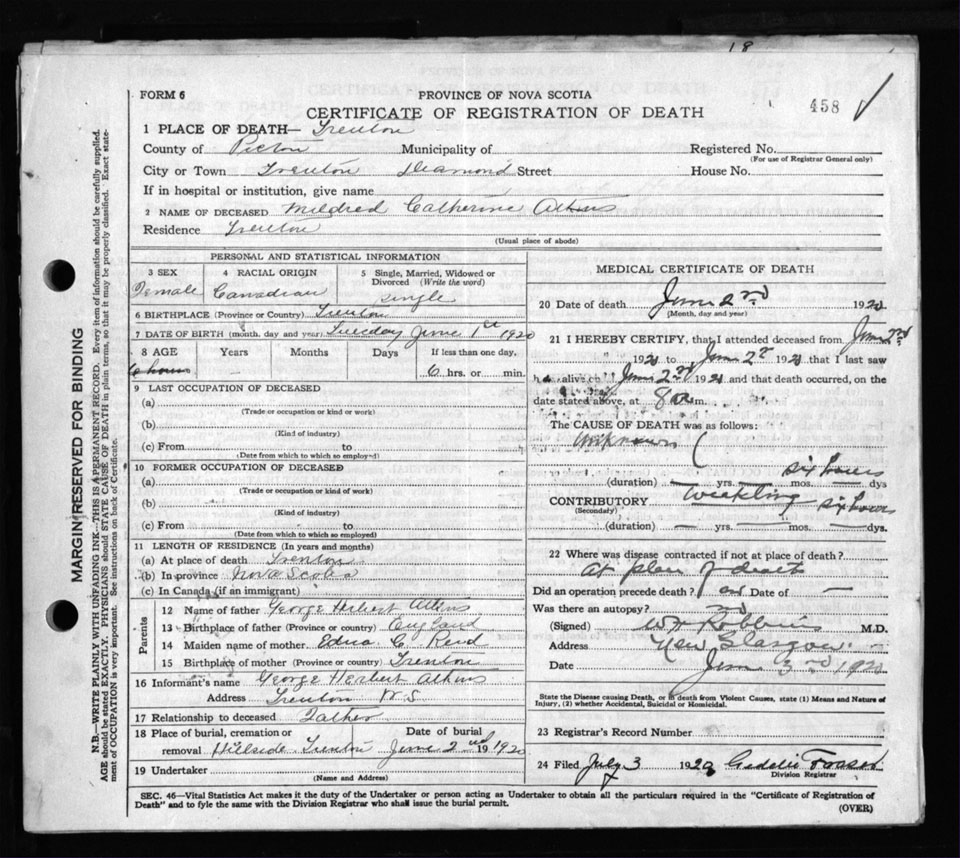 18
FORM 6
PROVINCE OF NOVA SCOTIA
458
CERTIFICATE OF REGISTRATION OF DEATH
1 PLACE OF DEATH— Trenton
County of Pictou Municipality of Registered No.
(For use of Registrar General only)
City or Town Trenton Diamond Street House No.
If in hospital or institution, give name
2 NAME OF DECEASED Mildred Catherine Atkins
Residence Trenton
(Usual place of abode)
PERSONAL AND STATISTICAL INFORMATION
3 SEX 4 RACIAL ORIGIN 5 Single, Married, Widowed or
Divorced (Write the word)
Female Canadian single
6 BIRTHPLACE (Province or Country) Trenton
7 DATE OF BIRTH (month, day and year) Tuesday June 1st 1920
8 AGE Years Months Days If less than one day,
6 hours 6 hrs. or min.
9 LAST OCCUPATION OF DECEASED
(a)
(Trade or occupation or kind or work)
(b)
(Kind of industry)
(c) From to
(Date from which to which employed)
10 FORMER OCCUPATION OF DECEASED
(a)
(Trade or occupation or kind of work)
(b)
(Kind of industry)
(c) From to
(Date from which to which so employed)
11 LENGTH OF RESIDENCE (In years and months)
(a) At place of death Trenton
(b) In province Nova Scotia
(c) In Canada (if an immigrant)
Parents
12 Name of father George Herbert Atkins
13 Birthplace of father (Province or country) England
14 Maiden name of mother Edna C. Reid
15 Birthplace of mother (Province or country) Trenton
16 Informant's name George Herbert Atkins
Address Trenton N.S
17 Relationship to deceased Father
18 Place of burial, cremation or Date of burial
removal Hillside Trenton June 2nd 1920
19 Undertaker
(Name and Address)
MEDICAL CERTIFICATE OF DEATH
20 Date of death June 2nd 192
(Month, day and year)
21 I HEREBY CERTIFY, that I attended deceased from June 2nd
192 to June 2nd 192 that I last saw
h alive on June 2nd 192 and that death occurred, on the
date stated above, at 8 a m.
The CAUSE OF DEATH was as follows:
Unknown
six hours
(duration) — yrs. — mos. — dys
CONTRIBUTORY Weakling six hours
(Secondary)
(duration) — yrs. — mos. — dys.
22 Where was disease contracted if not at place of death?
At place of death
Did an operation precede death? no Date of —
Was there an autopsy? no
(Signed) Robbins M.D.
Address New Glasgow
Date June 3rd 192
State the Disease causing Death, or in death from Violent Causes, state (1) Means and Nature of
Injury, (2) whether Accidental, Suicidal or Homicidal.
23 Registrar's Record Number
24 Filed July 3 192 Fraser
Division Registrar
SEC. 46—Vital Statistics Act makes it the duty of the Undertaker or person acting as Undertaker to obtain all the particulars required in the "Certificate of Registration of
Death" and to fyle the same with the Division Registrar who shall issue the burial permit.
(OVER)
MARGIN RESERVED FOR BINDING
N.B.—WRITE PLAINLY WITH UNFADING INK—THIS IS A PERMANENT RECORD. Every item of information should be carefully supplied.
AGE should be stated EXACTLY. PHYSICIANS should STATE CAUSE OF DEATH in plain terms, so that it may be properly classified. Exact state-
ment of OCCUPATION is very important. See instructions on back of Certificate.